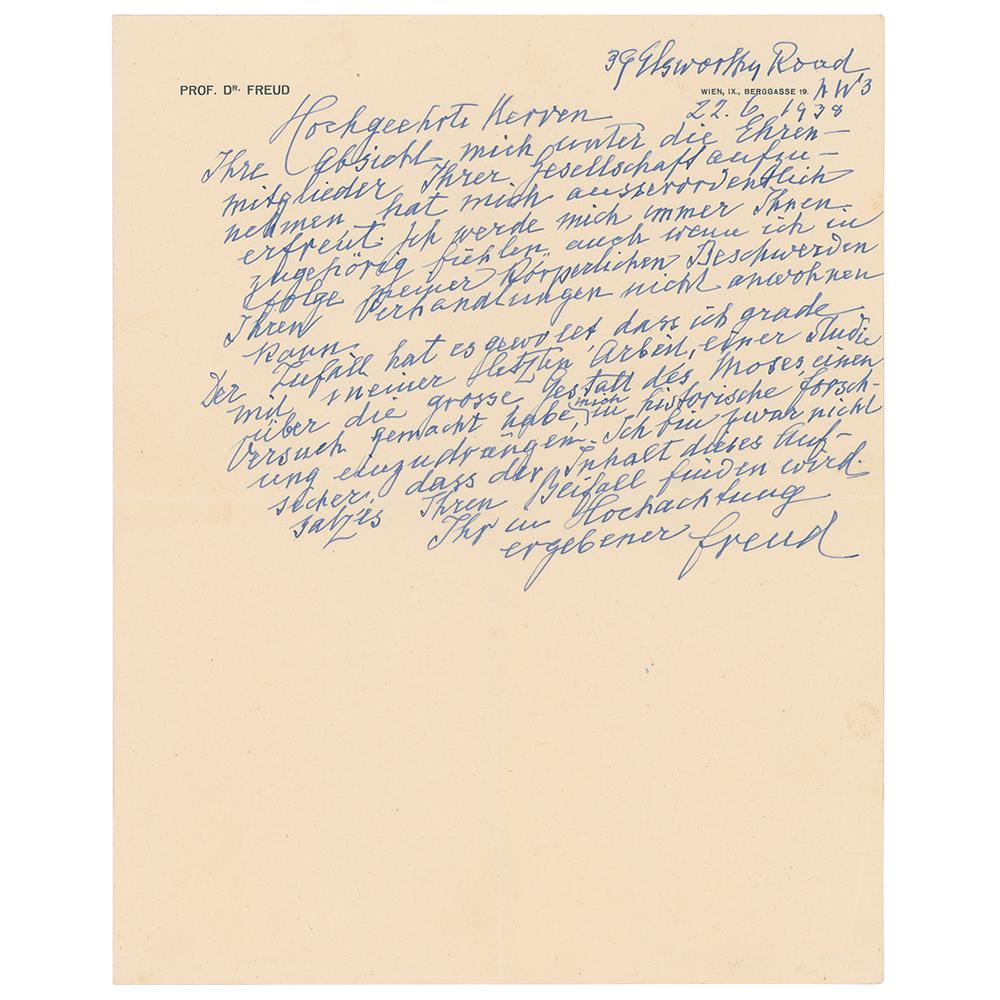 39 Elsworthy Road
PROF. DR. FREUD
WIEN, IX., BERGGASSE 19. N W 3
22. 6. 1938
Hochgeehrte Herren
Ihre Absicht mich unter die Ehren-
mitglieder Ihrer Gesellschaft aufzu-
nehmen hat mich ausserordentlich
erfreut. Ich werde mich immer Ihnen
zugehörig fühlen, auch wenn ich in
folge meiner körperlichen Beschwerden
Ihren Verhandlungen nicht anwohnen
kann.
Der Zufall hat es gewollt, dass ich grade
mit meiner letzten Arbeit, einer Studie
über die grosse Gestalt des Moses, einen
Versuch gemacht habe, mich in historische Forsch-
ung einzudrängen. Ich bin zwar nicht
sicher, dass der Inhalt dieses Auf-
satzes Ihren Beifall finden wird.
Ihr in Hochachtung
ergebener Freud